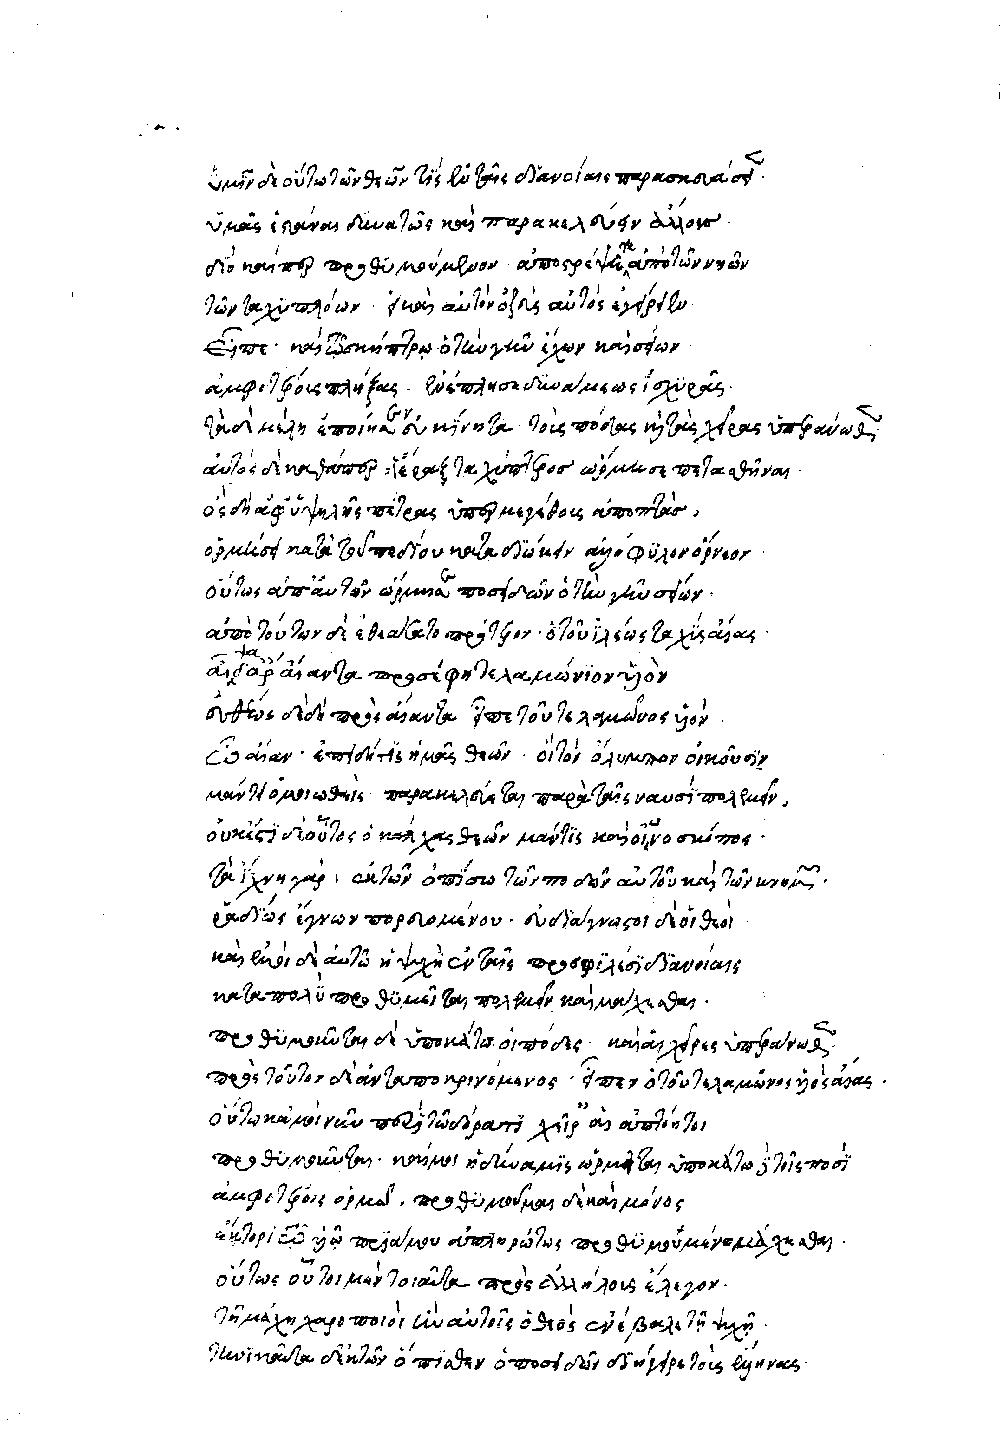 ὑμῖν δὲ οὕτω τῶν θεῶν τὶς ἐν ταῖς διανοίαις παρασκευάσει·
ὑμᾶς ἱστάναι δυνατῶς καὶ παρακελεύειν ἄλλους·
διὸ καίπερ προθυμούμενον ἀποστρέψαι ἀπὸ τῶν νηῶν
τῶν ταχυπλόων· εἰ καὶ αὐτὸν ὁ ζεὺς αὐτὸς ἐγείρει·
Εἶπε· καὶ τῶ σκήπτρω ὁ τὴν γῆν ἔχων καὶ σείων
ἀμφοτέρους πλήξας· ἐνέπλησε δυνάμεως ἰσχυρᾶς·
τὰ δὲ μέλη ἐποίησεν εὐκίνητα τοὺς πόδας καὶ τὰς χεῖρας ὑπεράνωθεν
αὐτὸς δὲ καθάπερ ἱέραξ ταχύπτερος ὥρμησε πετασθῆναι·
ὃς δὴ ἀφ' ὑψηλῆς πέτρας ὑπερμεγέθους ἀποπτὰς,
ὁρμήσει κατὰ τοῦ πεδίου καταδιώκειν ἀλλόφυλον ὄρνεον·
οὕτως ἀπ' αὐτῶν ὥρμησε ποσειδῶν ὁ τὴν γῆν σείων·
ἀπὸ τούτων δὲ ἐθεάσατο πρότερον ὁ τοῦ ἰλέως ταχὺς αἴας·
αἶψα δ' ἄρ' αἴαντα προσέφη τελαμώνιον υἱὸν
εὐθέως δὲ δὴ πρὸς αἴαντα εἶπε τοῦ τελαμῶνος υἱόν·
Ὦ αἶαν· ἐπειδή τις ἡμᾶς θεῶν· οἳ τὸν ὄλυμπον οἰκοῦσιν
μάντι ὁμοιωθεὶς παρακελεύεται παρὰ ταῖς ναυσὶ πολεμεῖν,
οὐκ ἔστι δὲ οὗτος ὁ κάλχας θεῶν μάντις καὶ οἰωνοσκόπος·
τὰ ἴχνη γὰρ ἐκ τῶν ὀπίσω τῶν ποδῶν αὐτοῦ καὶ τῶν κνημῶν·
ῥαδίως ἔγνων πορευομένου· εὐδιάγνωστοι δὲ οἱ θεοί
καὶ ἐμοὶ δὲ αὐτῶ ἡ ψυχὴ ἐν ταῖς προσφιλέσι διανοίαις
καταπολὺ προθυμεῖται πολεμεῖν καὶ μάχεσθαι·
προθυμοῦνται δὲ ὑποκάτω οἱ πόδες· καὶ αἱ χεῖρες ὑπεράνωθεν·
πρὸς τοῦτον δὲ ἀνταποκρινόμενος εἶπεν ὁ τοῦ τελαμῶνος υἱὸς αἴας·
οὕτω κἀμοὶ νῦν περὶ τῶ δόρατι χεῖρες αἱ ἀπτόητοι
προθυμοῦνται· καί μοι ἡ δύναμις ὥρμηται ὑποκάτω δὲ τοῖς ποσὶ
ἀμφοτέροις ὁρμῶ, προθυμοῦμαι δὲ καὶ μόνος
ἕκτορι τῶ υἱῶ πριάμου ἀπληρώτως προθυμουμένω μάχεσθαι·
οὕτως οὗτοι μὲν τοιαῦτα πρὸς ἀλλήλους ἔλεγον·
τῆ μάχη χαροποιοὶ ἣν αὐτοῖς ὁ θεὸς ἐνέβαλε τῆ ψυχῆ·
τηνικαῦτα δὲ ἐκ τῶν ὄπισθεν ὁ ποσειδῶν διήγειρε τοὺς ἕλληνας·